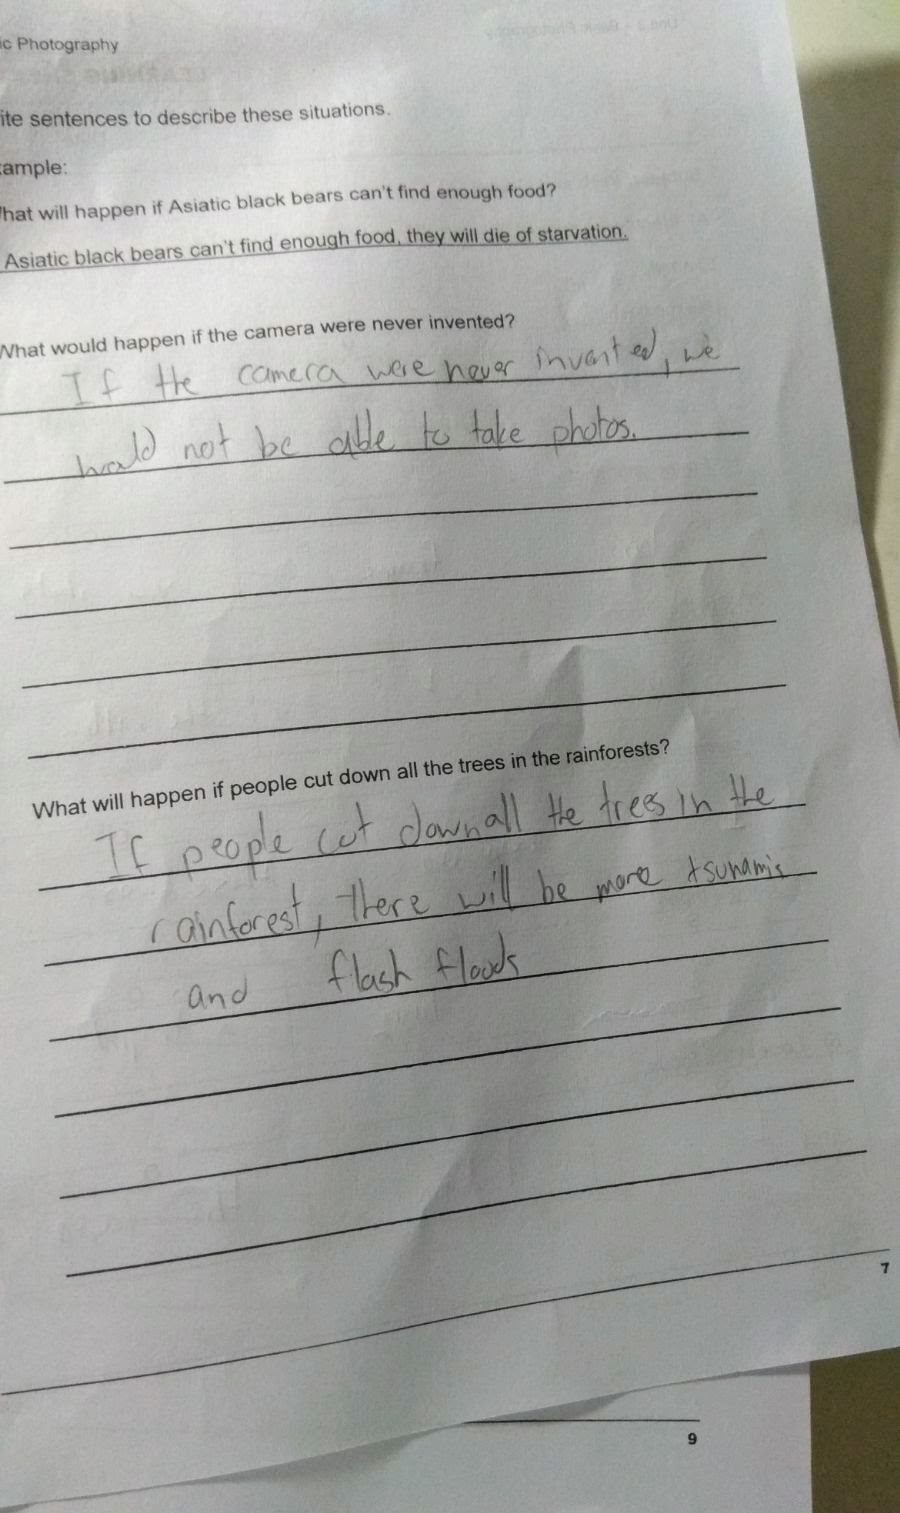 ic Photography
ite sentences to describe these situations.
ample:
hat will happen if Asiatic black bears can't find enough food?
Asiatic black bears can't find enough food, they will die of starvation.
What would happen if the camera were never invented?
If the camera were never invented, we
would not be able to take photos.
What will happen if people cut down all the trees in the rainforests?
If people cut down all the trees in the
rainforest, there will be more tsunamis
and flash floods
7
9